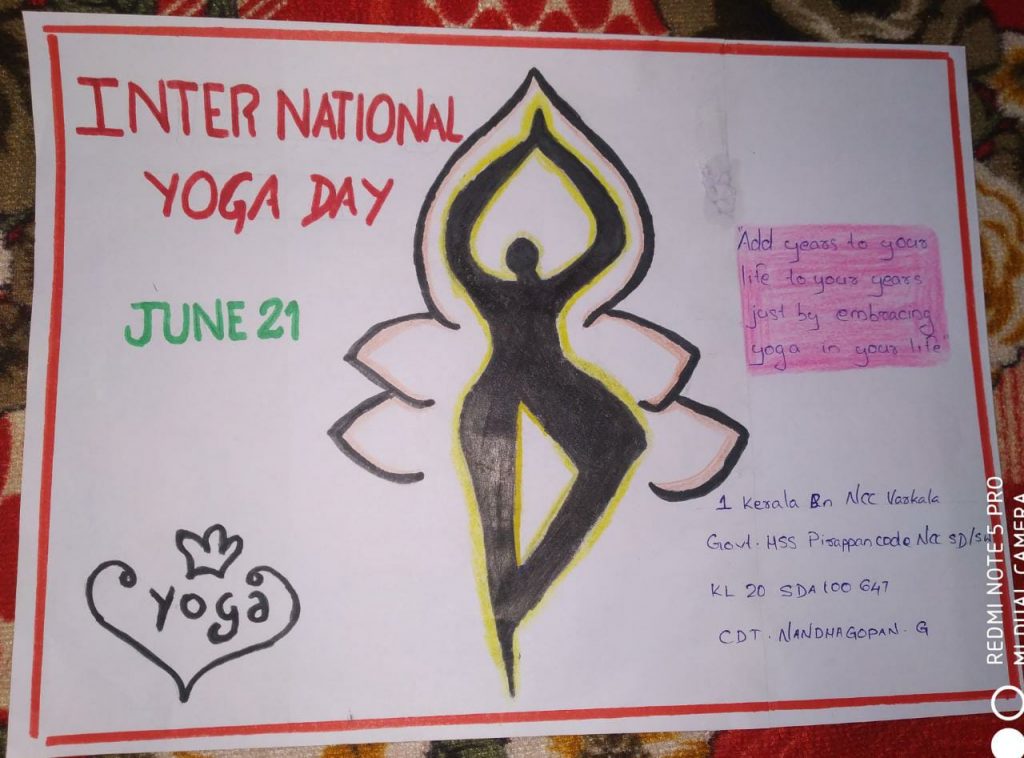 INTERNATIONAL
YOGA DAY
JUNE 21
"Add years to your
life to your years
just by embracing
yoga in your life"
yoga
1 Kerala Bn Ncc Varkala
Govt. HSS Pirappancode Ncc SD/SW
KL 20 SDA 100 647
CDT. NANDHAGOPAN. G
REDMI NOTE 5 PRO
MI DUAL CAMERA